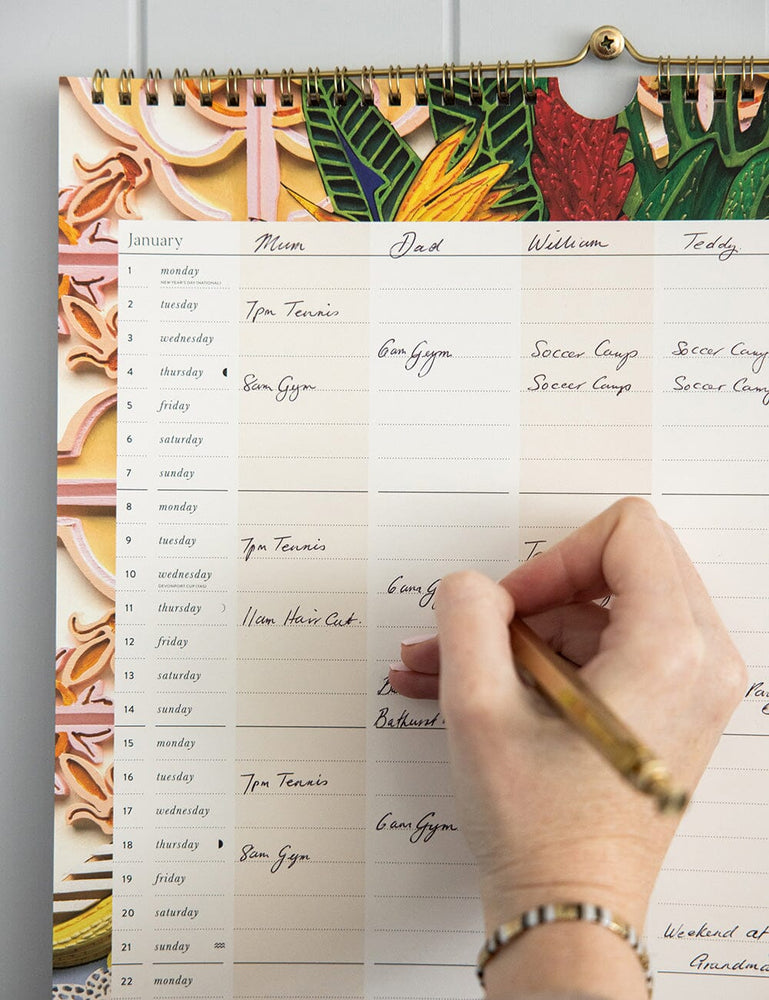 January Mum Dad William Teddy
1 monday
NEW YEAR'S DAY (NATIONAL)
2 tuesday 7pm Tennis
3 wednesday 6am Gym Soccer Camp Soccer Camp
4 thursday 8am Gym Soccer Camp Soccer Camp
5 friday
6 saturday
7 sunday
8 monday
9 tuesday 7pm Tennis
10 wednesday 6am Gy
DEVONPORT CUP (TAS)
11 thursday 11am Hair Cut.
12 friday
13 saturday
14 sunday Bathurst
15 monday
16 tuesday 7pm Tennis
17 wednesday 6am Gym
18 thursday 8am Gym
19 friday
20 saturday Weekend at
21 sunday Grandma
22 monday